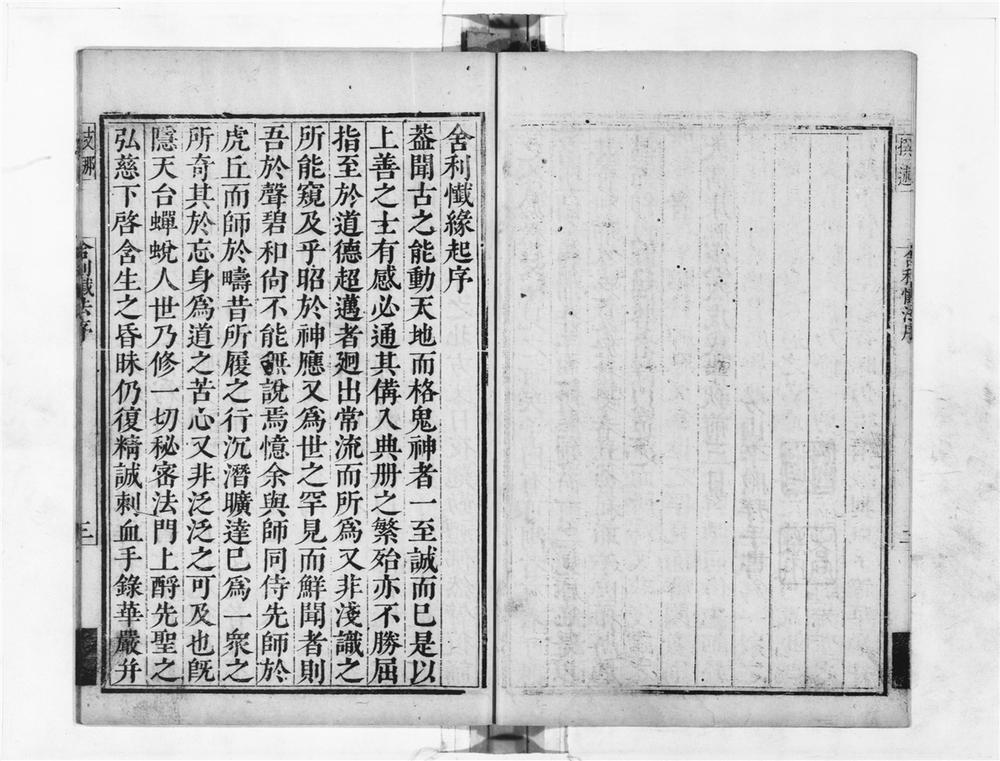 舍利懺緣起序
葢聞古之能動天地而格鬼神者一至誠而已是以
上善之士有感必通其僃入典册之繁殆亦不勝屈
指至於道德超邁者廻出常流而所爲又非淺識之
所能窺及乎昭於神應又爲世之罕見而鮮聞者則
吾於聲碧和尚不能無說焉憶余與師同侍先師於
虎丘而師於疇昔所履之行沉潛曠達已爲一衆之
所奇其於忘身爲道之苦心又非泛泛之可及也旣
隱天台蟬蛻人世乃修一切秘密法門上酧先聖之
弘慈下啓含生之昏昧仍復精誠刺血手錄華嚴并
舍利懺法序
三
撰述
舍利懺法序